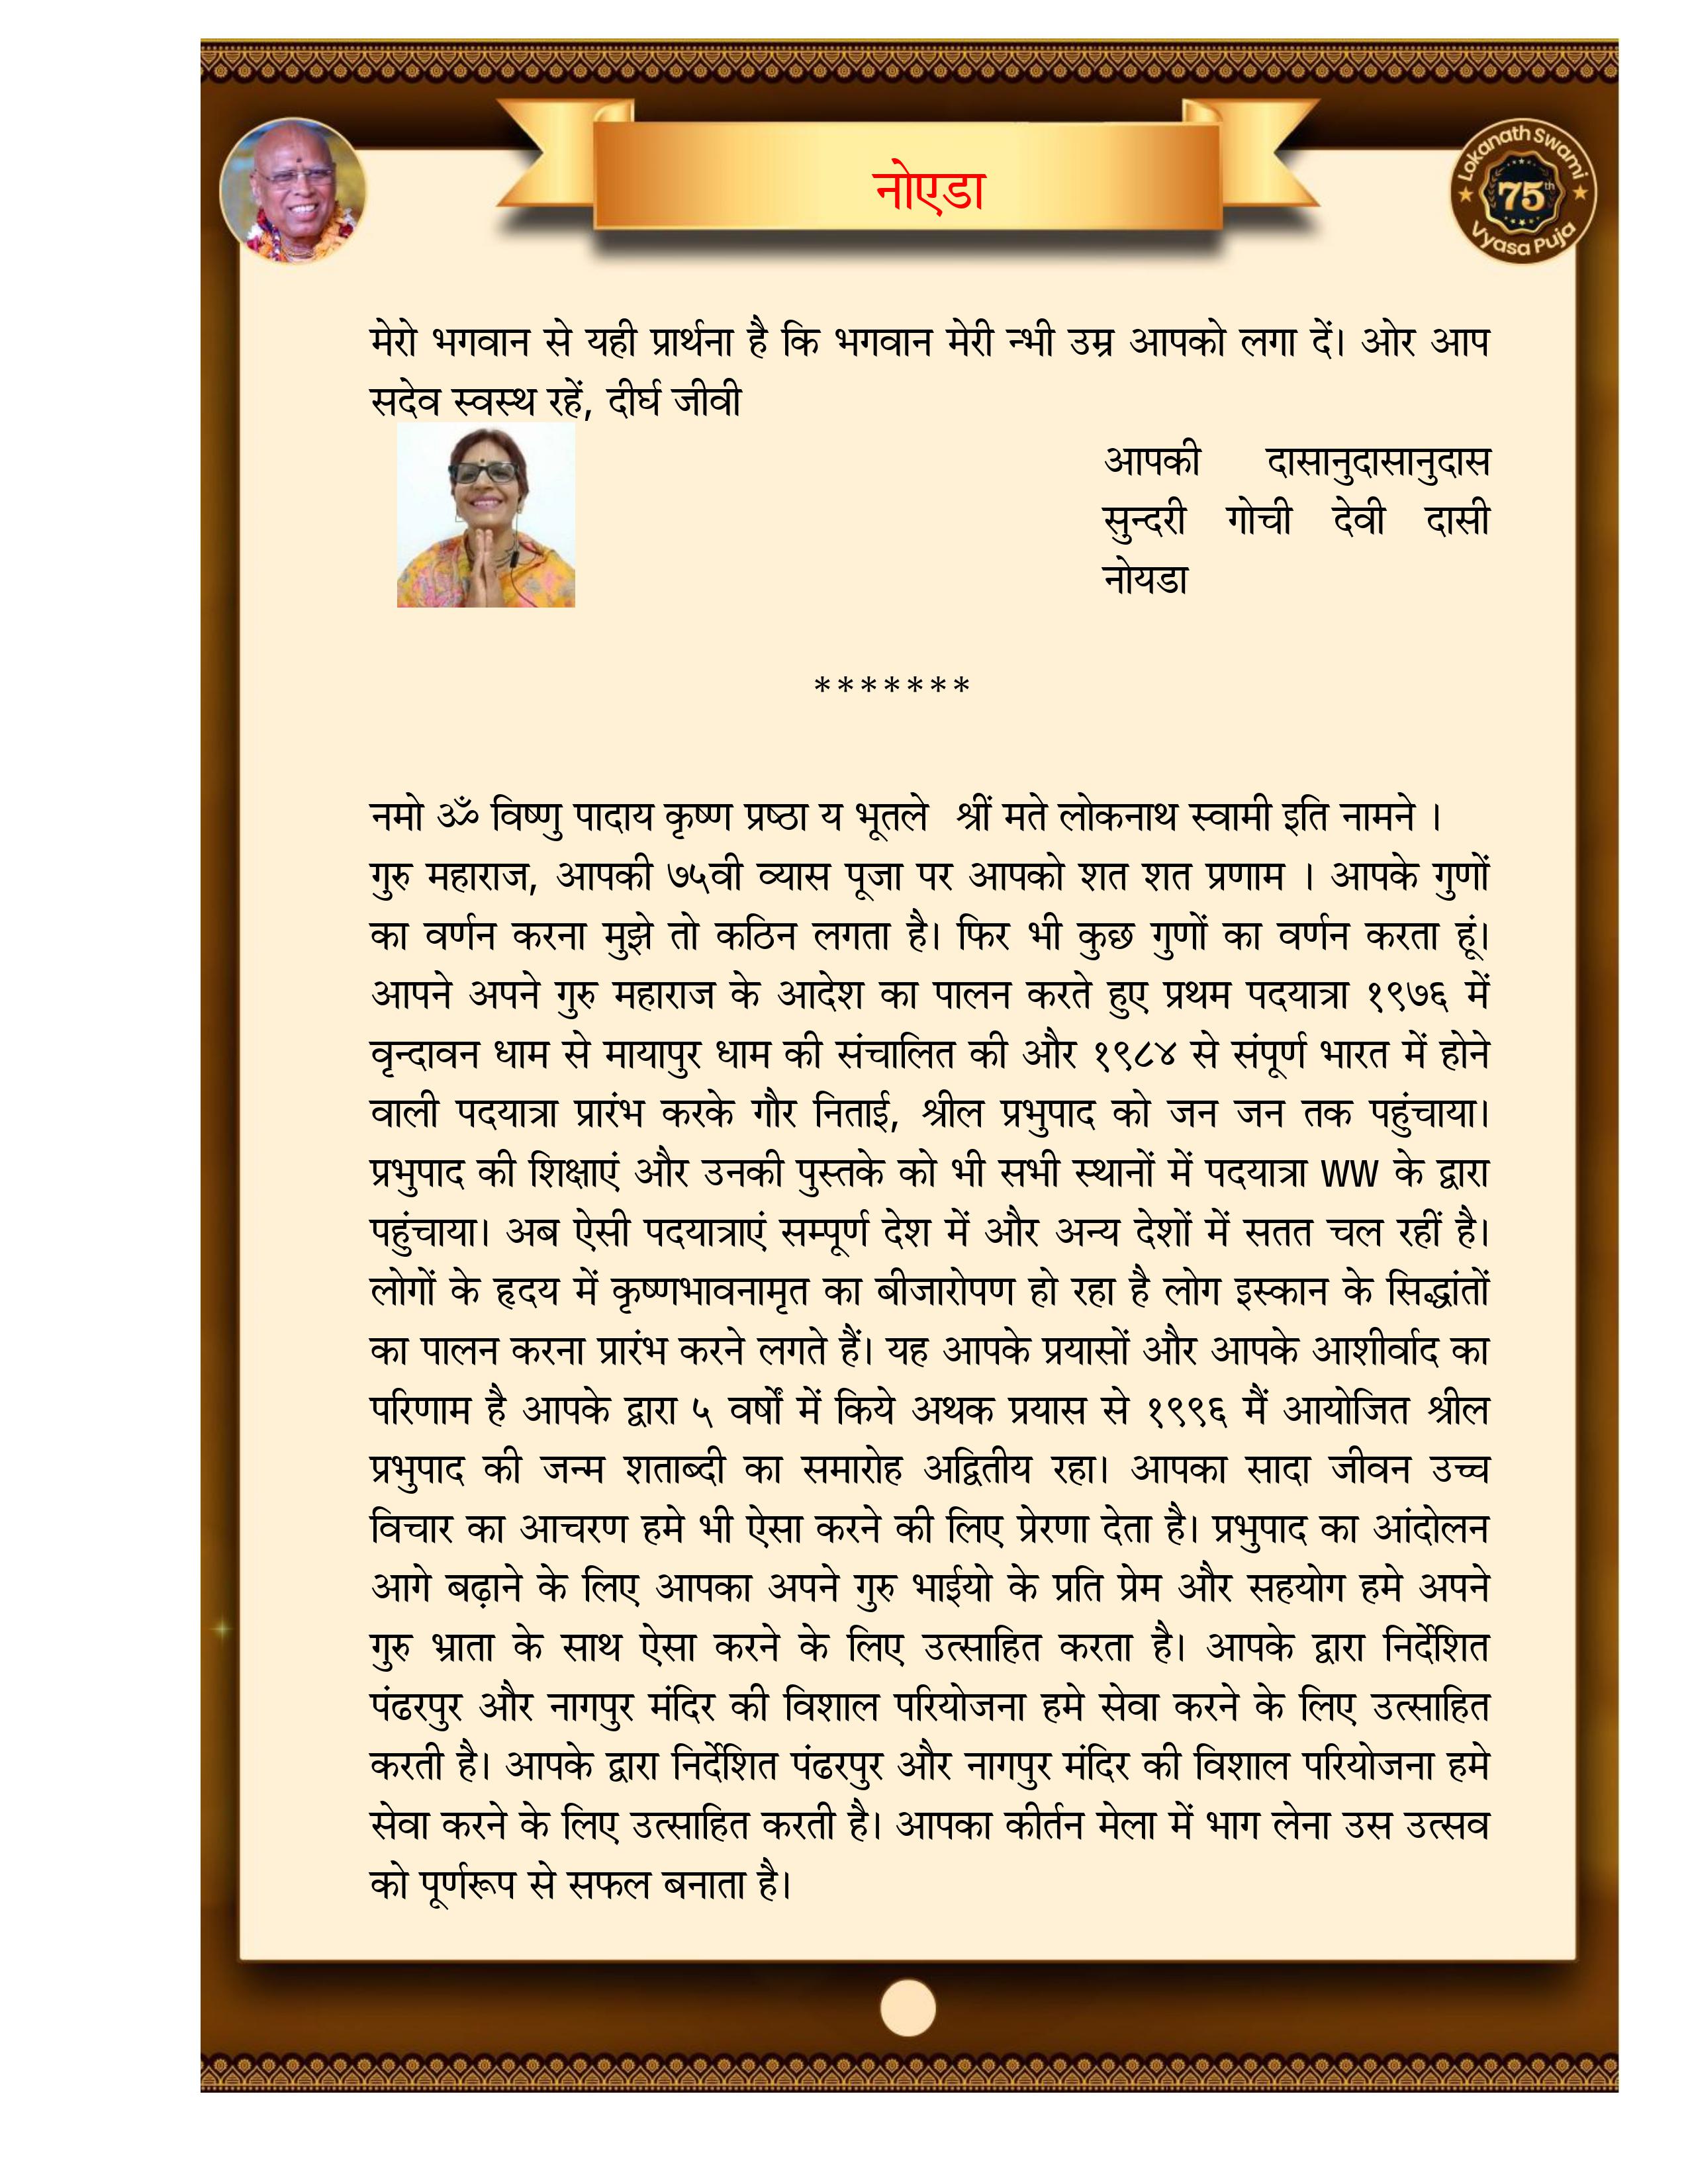 Lokanath Swami
75th
Vyasa Puja
नोएडा
मेरो भगवान से यही प्रार्थना है कि भगवान मेरी न्भी उम्र आपको लगा दें। ओर आप
सदेव स्वस्थ रहें, दीर्घ जीवी
आपकी दासानुदासानुदास
सुन्दरी गोची देवी दासी
नोयडा
*******
नमो ॐ विष्णु पादाय कृष्ण प्रष्ठा य भूतले श्रीं मते लोकनाथ स्वामी इति नामने ।
गुरु महाराज, आपकी ७५वी व्यास पूजा पर आपको शत शत प्रणाम । आपके गुणों
का वर्णन करना मुझे तो कठिन लगता है। फिर भी कुछ गुणों का वर्णन करता हूं।
आपने अपने गुरु महाराज के आदेश का पालन करते हुए प्रथम पदयात्रा १९७६ में
वृन्दावन धाम से मायापुर धाम की संचालित की और १९८४ से संपूर्ण भारत में होने
वाली पदयात्रा प्रारंभ करके गौर निताई, श्रील प्रभुपाद को जन जन तक पहुंचाया।
प्रभुपाद की शिक्षाएं और उनकी पुस्तके को भी सभी स्थानों में पदयात्रा WW के द्वारा
पहुंचाया। अब ऐसी पदयात्राएं सम्पूर्ण देश में और अन्य देशों में सतत चल रहीं है।
लोगों के हृदय में कृष्णभावनामृत का बीजारोपण हो रहा है लोग इस्कान के सिद्धांतों
का पालन करना प्रारंभ करने लगते हैं। यह आपके प्रयासों और आपके आशीर्वाद का
परिणाम है आपके द्वारा ५ वर्षों में किये अथक प्रयास से १९९६ मैं आयोजित श्रील
प्रभुपाद की जन्म शताब्दी का समारोह अद्वितीय रहा। आपका सादा जीवन उच्च
विचार का आचरण हमे भी ऐसा करने की लिए प्रेरणा देता है। प्रभुपाद का आंदोलन
आगे बढ़ाने के लिए आपका अपने गुरु भाईयो के प्रति प्रेम और सहयोग हमे अपने
गुरु भ्राता के साथ ऐसा करने के लिए उत्साहित करता है। आपके द्वारा निर्देशित
पंढरपुर और नागपुर मंदिर की विशाल परियोजना हमे सेवा करने के लिए उत्साहित
करती है। आपके द्वारा निर्देशित पंढरपुर और नागपुर मंदिर की विशाल परियोजना हमे
सेवा करने के लिए उत्साहित करती है। आपका कीर्तन मेला में भाग लेना उस उत्सव
को पूर्णरूप से सफल बनाता है।